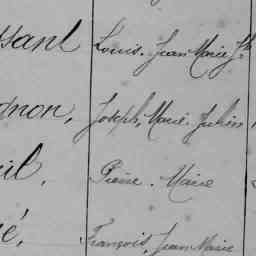 ssant Louis. Jean Marie Jh
gnon, Joseph, Marie Julien
uil, Pierre. Marie
é, François, Jean Marie